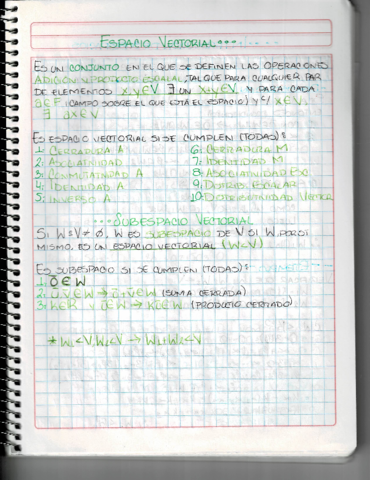 ESPACIO VECTORIAL
ES UN CONJUNTO EN EL QUE SE DEFINEN LAS OPERACIONES
ADICIÓN Y PRODUCTO ESCALAR, TAL QUE PARA CUALQUIER PAR
DE ELEMENTOS x,y∈V ∃ UN x+y∈V. Y PARA CADA
a∈F (CAMPO SOBRE EL QUE ESTÁ EL ESPACIO) Y x∈V,
∃ ax∈V
ES ESPACIO VECTORIAL SI SE CUMPLEN (TODAS):
1: CERRADURA A 6: CERRADURA M
2: ASOCIATIVIDAD 7: IDENTIDAD M
3: CONMUTATIVIDAD A 8: ASOCIATIVIDAD ESC
4: IDENTIDAD A 9: DISTRIB. ESCALAR
5: INVERSO A 10: DISTRIBUTIVIDAD VECTOR
SUBESPACIO VECTORIAL
SI W≤V≠∅. W ES SUBESPACIO DE V SI W, POR SÍ
MISMO, ES UN ESPACIO VECTORIAL (W<V)
ES SUBESPACIO SI SE CUMPLEN (TODAS):
1: 0∈W
2: ū, v̄∈W → ū+v̄∈W (SUMA CERRADA)
3: k∈R ū∈W → kū∈W (PRODUCTO CERRADO)
* W₁<V, W₂<V → W₁+W₂<V